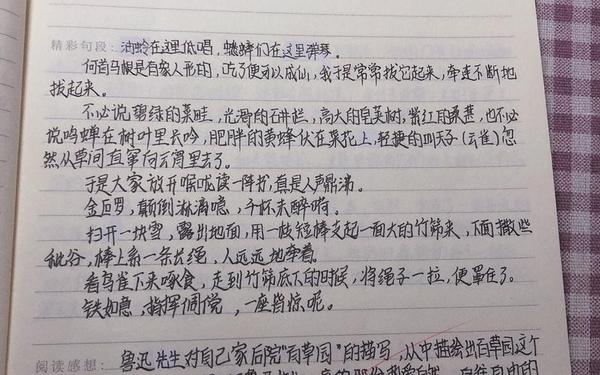 精彩句段：油蛉在这里低唱，蟋蟀们在这里弹琴。
何首乌根是有象人形的，吃了便可以成仙，我于是常常拔它起来，牵连不断地
拔起来。
不必说碧绿的菜畦，光滑的石井栏，高大的皂荚树，紫红的桑葚，也不必
说鸣蝉在树叶里长吟，肥胖的黄蜂伏在菜花上，轻捷的叫天子(云雀)忽
然从草间直窜向云霄里去了。
于是大家放开喉咙读一阵书，真是人声鼎沸。
金叵罗，颠倒淋漓噫，千杯未醉嗬。
扫开一块雪，露出地面，用一枝短棒支起一面大的竹筛来，下面撒些
秕谷，棒上系一条长绳，人远远地牵着。
看鸟雀下来啄食，走到竹筛底下的时候，将绳子一拉，便罩住了。
铁如意，指挥倜傥，一座皆惊呢。
阅读感想：鲁迅先生对自己家后院"百草园"的描写，从中描绘出百草园这个